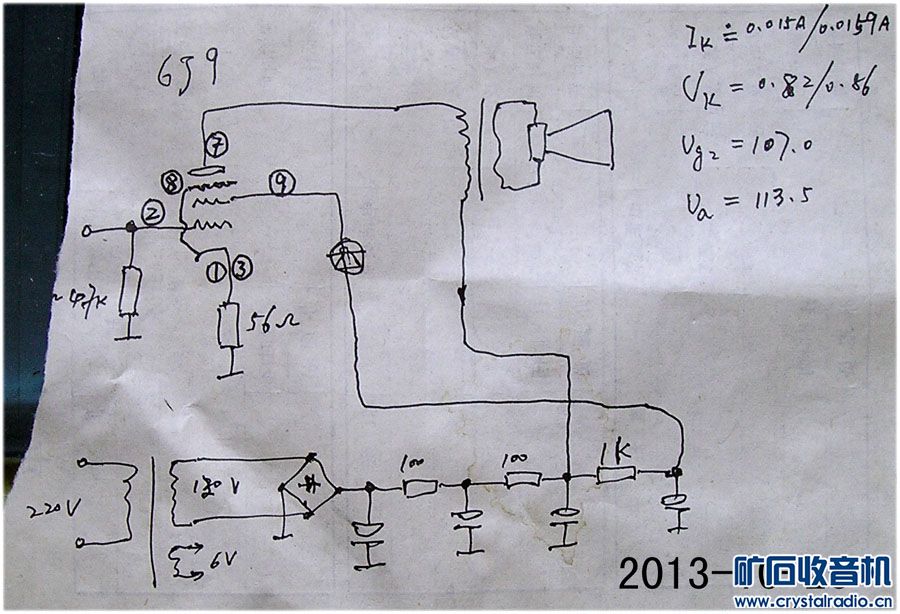 6J9
IK ≐ 0.015A/0.0159A
VK = 0.82/0.86
Vg2 = 107.0
Ua = 113.5
⑦
⑧
⑨
②
①
③
47K
56Ω
220V
6V
100
100
1K
2013-
矿石收音机
www.crystalradio.cn